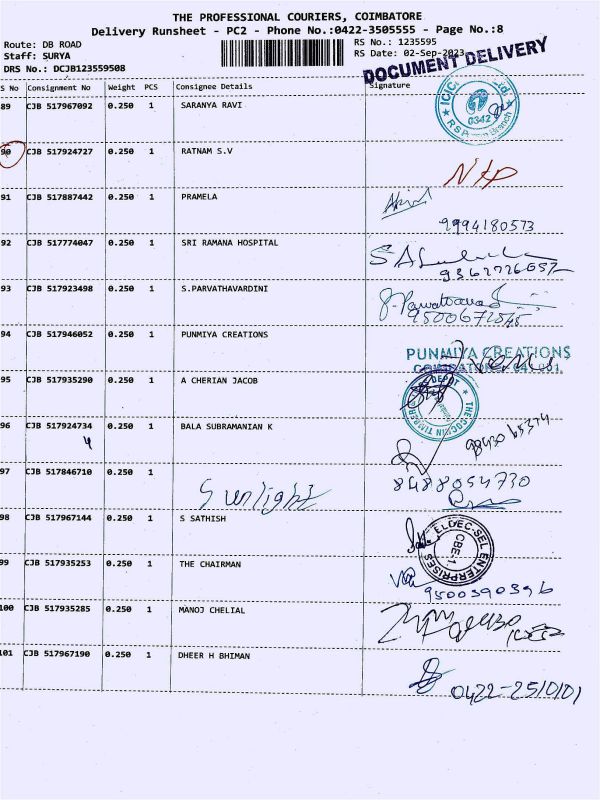 THE PROFESSIONAL COURIERS, COIMBATORE
Delivery Runsheet - PC2 - Phone No.:0422-3505555 - Page No.:8
Route: DB ROAD
RS No.: 1235595
Staff: SURYA
RS Date: 02-Sep-2023
DRS No.: DCJB123559508
DOCUMENT DELIVERY
S No Consignment No Weight PCS Consignee Details Signature
89 CJB 517967092 0.250 1 SARANYA RAVI
0342
90 CJB 517924727 0.250 1 RATNAM S.V
91 CJB 517887442 0.250 1 PRAMELA
9994180573
92 CJB 517774047 0.250 1 SRI RAMANA HOSPITAL
93 CJB 517923498 0.250 1 S.PARVATHAVARDINI
94 CJB 517946052 0.250 1 PUNMIYA CREATIONS
PUNMIYA CREATIONS
95 CJB 517935290 0.250 1 A CHERIAN JACOB
96 CJB 517924734 0.250 1 BALA SUBRAMANIAN K
4
97 CJB 517846710 0.250 1
Sunlight
8488054730
98 CJB 517967144 0.250 1 S SATHISH
ELDEC-SEL ENTERPRISES
CBE-1
99 CJB 517935253 0.250 1 THE CHAIRMAN
9500390396
100 CJB 517935285 0.250 1 MANOJ CHELIAL
101 CJB 517967190 0.250 1 DHEER H BHIMAN
0422-2510101